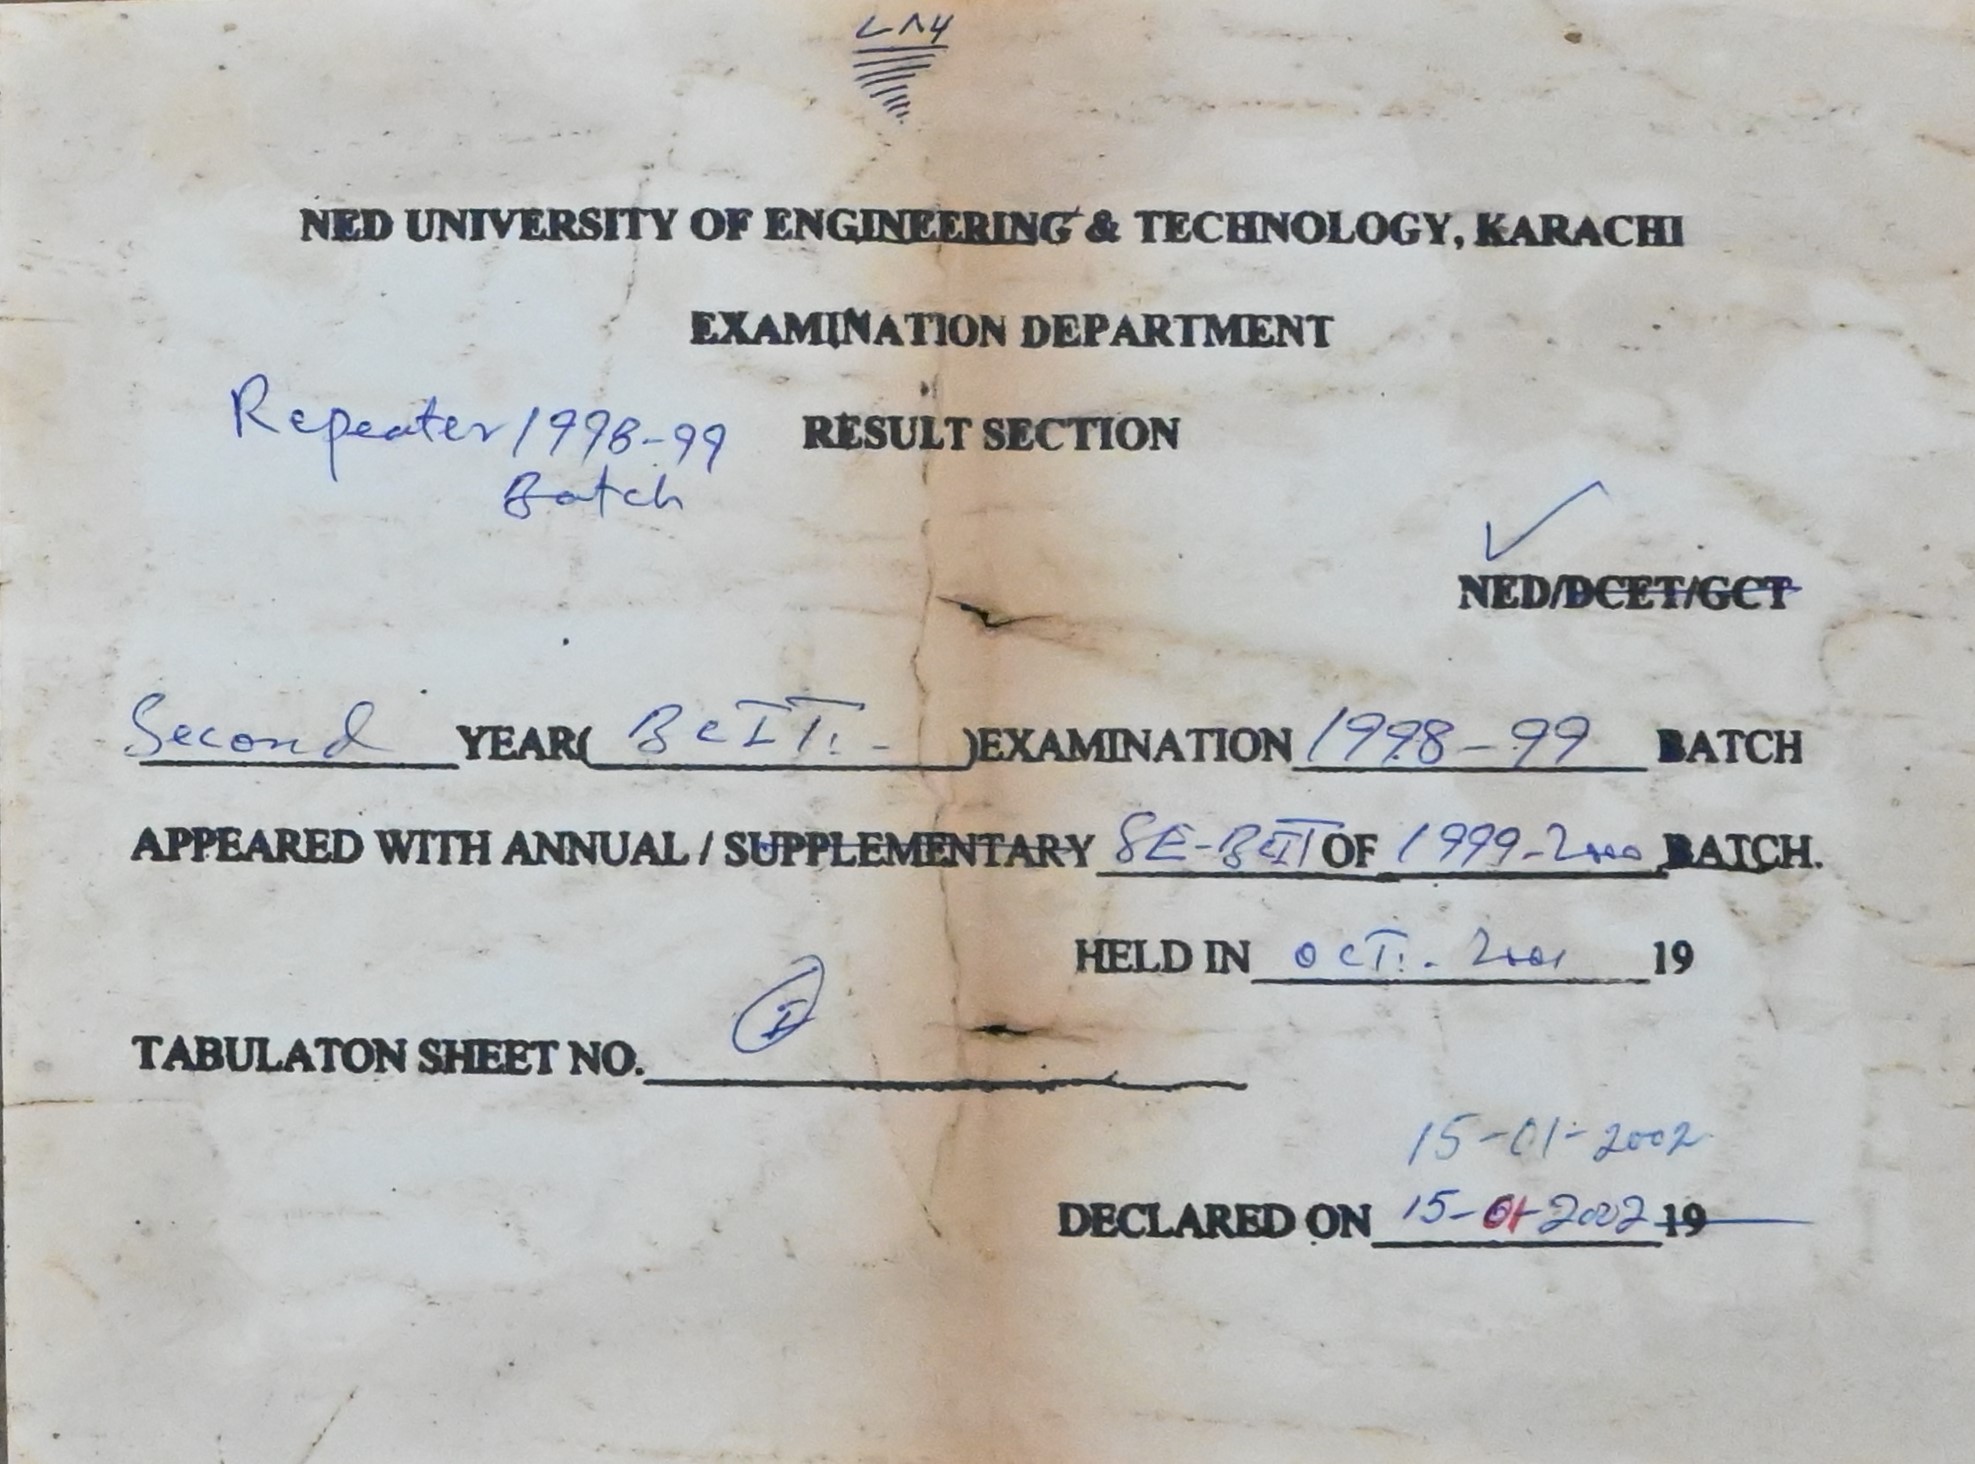 NED UNIVERSITY OF ENGINEERING & TECHNOLOGY, KARACHI
EXAMINATION DEPARTMENT
Repeater 1998-99 RESULT SECTION
Batch
NED/DCET/GCT
Second YEAR( BCIT. - )EXAMINATION 1998-99 BATCH
APPEARED WITH ANNUAL / SUPPLEMENTARY SE-BCIT OF 1999-2000 BATCH.
HELD IN OCT. 2001 19
TABULATON SHEET NO. I
15-01-2002
DECLARED ON 15-01-2002 19